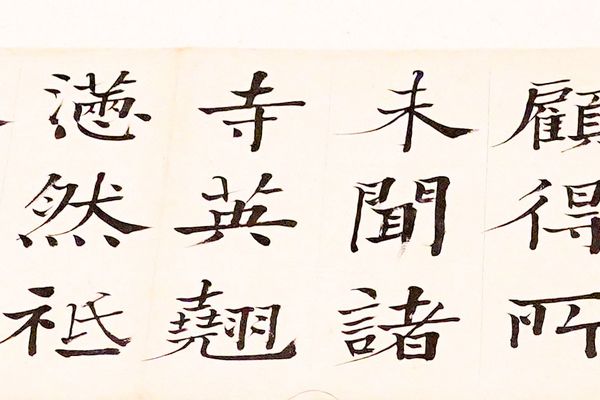 顧得所
未聞諸
寺英翹
懣然祗